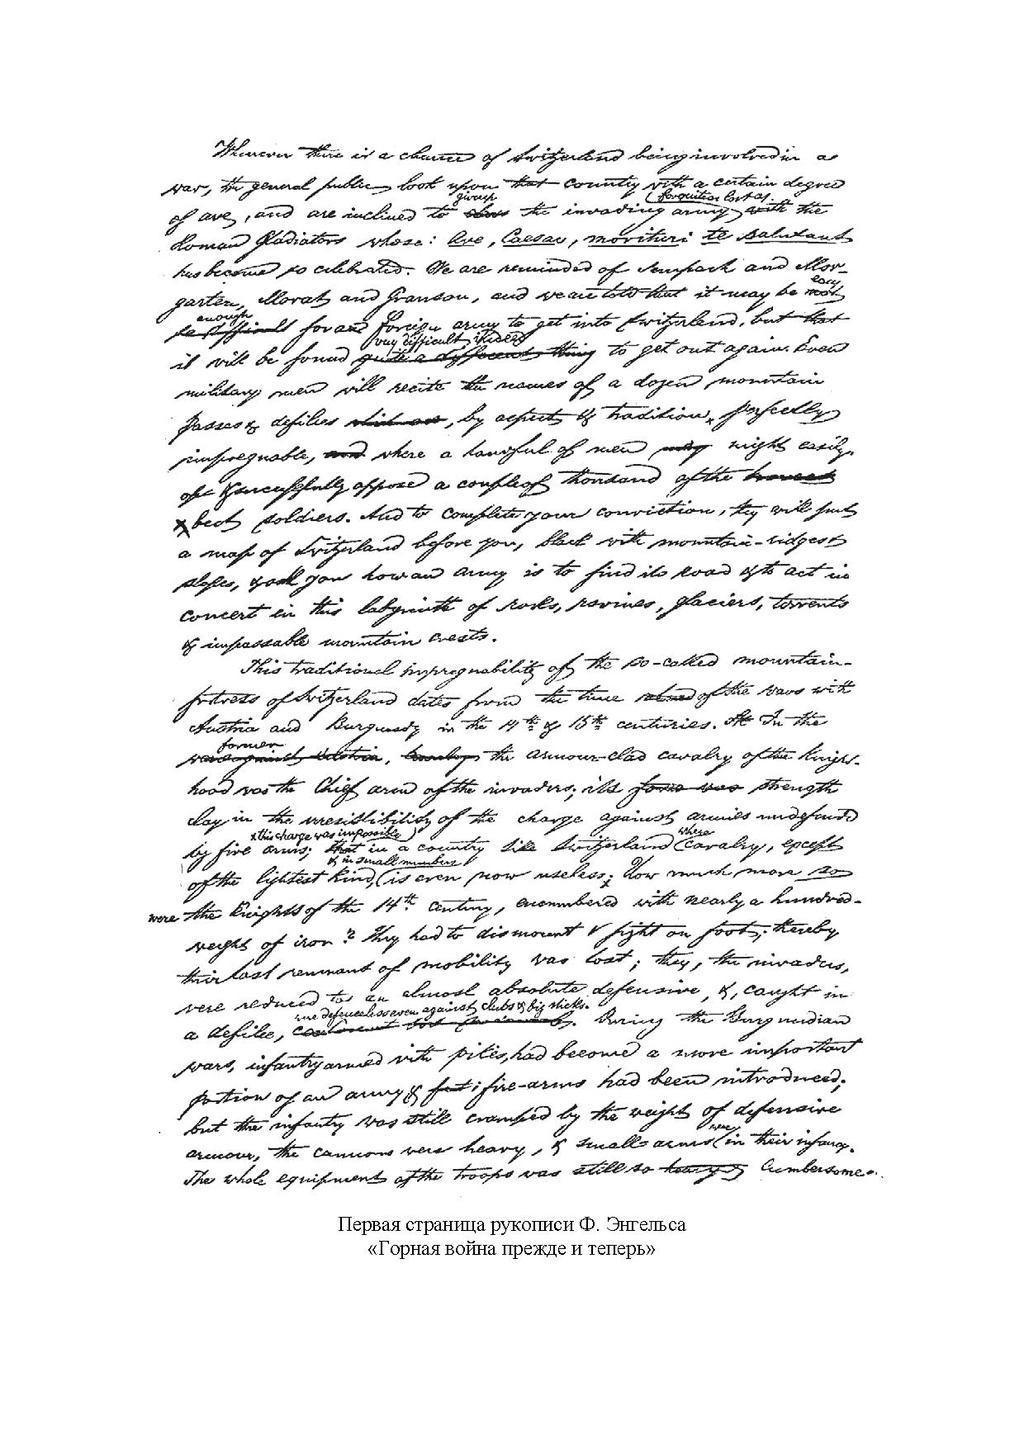 Whenever there is a chance of Switzerland being involved in a
war, the general public look upon that country with a certain degree
of awe, and are inclined to give up the invading army for quite as lost as the
Roman Gladiators whose: Ave, Caesar, morituri te salutant
has become so celebrated. We are reminded of Sempach and Mor-
garten, Morat and Granson, and we are told that it may be easy
enough for a foreign army to get into Switzerland, but that
it will be found very difficult indeed to get out again. Even
military men will recite the names of a dozen mountain
passes & defiles, by aspect & tradition, perfectly
impregnable, where a handful of men might easily
& successfully oppose a couple of thousand of the
best soldiers. And to complete your conviction, they will put
a map of Switzerland before you, black with mountain-ridges &
slopes, & ask you how an army is to find its road & to act in
concert in this labyrinth of rocks, ravines, glaciers, torrents
& impassable mountain crests.
This traditional impregnability of the so-called mountain-
fortress of Switzerland dates from the time of the wars with
Austria and Burgundy in the 14th & 15th centuries. In the
former, the armour-clad cavalry of the Knight-
hood was the chief arm of the invaders; its strength
lay in the irresistibility of the charge against armies undefended
by fire arms; this charge was impossible in a country like Switzerland where cavalry, except
of the lightest kind & in small numbers is even now useless; How much more so
were the Knights of the 14th century, encumbered with nearly a hundred-
weight of iron? They had to dismount & fight on foot; thereby
their last remnant of mobility was lost; they, the invaders,
were reduced to an almost absolute defensive, &, caught in
a defile, were defenceless even against clubs & big sticks. During the Burgundian
wars, infantry armed with pikes, had become a more important
portion of an army & fire-arms had been introduced;
but the infantry was still cramped by the weight of defensive
armour, the cannons were heavy, & small arms were in their infancy.
The whole equipment of the troops was still so heavy & cumbersome
Первая страница рукописи Ф. Энгельса
«Горная война прежде и теперь»